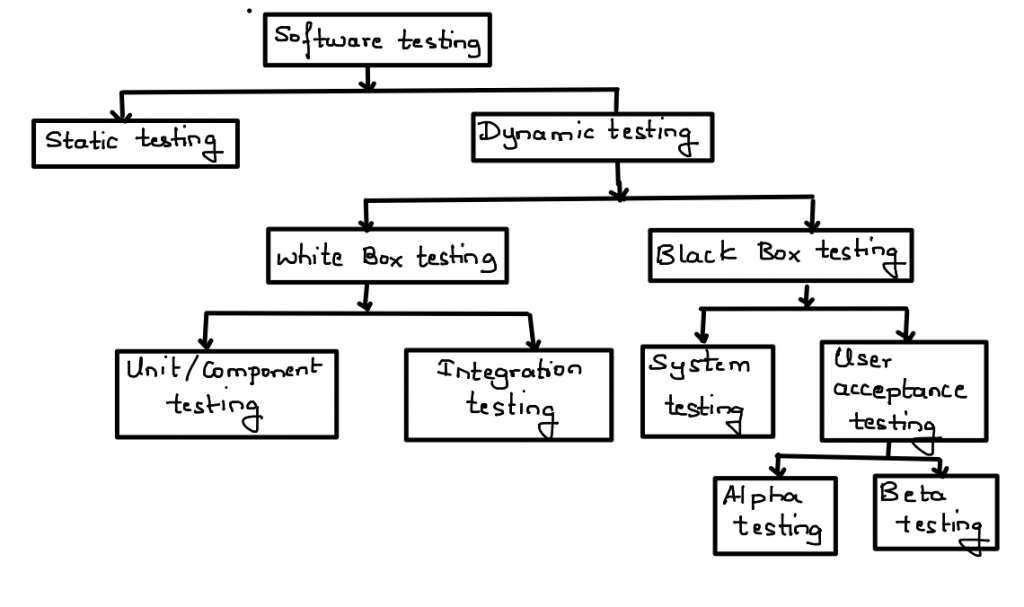 Software testing
Static testing
Dynamic testing
White Box testing
Black Box testing
Unit/Component
testing
Integration
testing
System
testing
User
acceptance
testing
Alpha
testing
Beta
testing